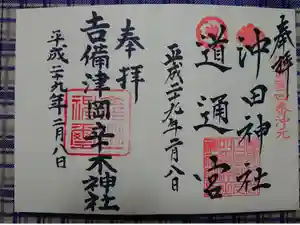 奉拝
沖田神社
道通宮
平成二十九年二月八日
奉拝
吉備津岡辛木神社
平成二十九年二月八日